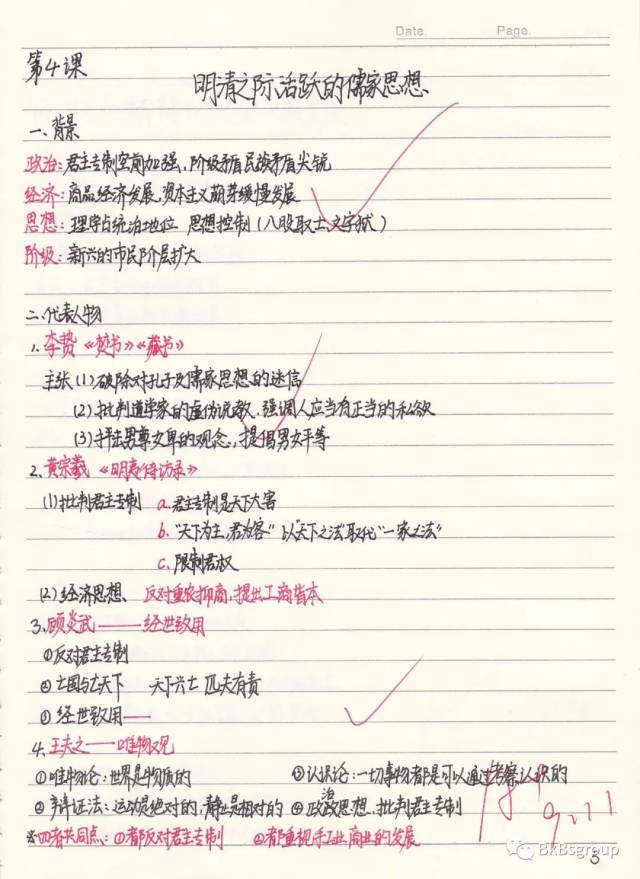 Date.    Page.
第4课
明清之际活跃的儒家思想
一、背景
政治:君主专制空前加强,阶级矛盾民族矛盾尖锐
经济:商品经济发展,资本主义萌芽缓慢发展
思想:理学占统治地位 思想控制(八股取士、文字狱)
阶级:新兴的市民阶层扩大
二、代表人物
1.李贽《焚书》《藏书》
主张(1)破除对孔子及儒家思想的迷信
(2)批判道学家的虚伪说教,强调人应当有正当的私欲
(3)抨击男尊女卑的观念,提倡男女平等
2.黄宗羲《明夷待访录》
(1)批判君主专制 a.君主专制是天下大害
b."天下为主,君为客" 以"天下之法"取代"一家之法"
c.限制君权
(2)经济思想、反对重农抑商,提出工商皆本
3.顾炎武——经世致用
①反对君主专制
②亡国与亡天下 天下兴亡 匹夫有责
③经世致用——
4.王夫之——唯物观
①唯物论:世界是物质的 ③认识论:一切事物都是可以通过考察认识的
②辩证法:运动是绝对的,静止是相对的 ④政治思想、批判君主专制
※四者共同点:①都反对君主专制 ②都重视手工业,商业的发展
9.11
BkBsgroup
3